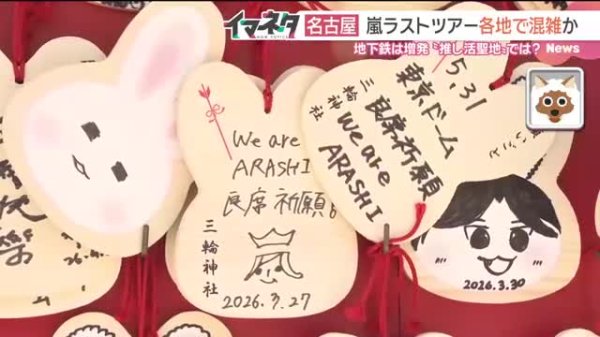 イマネタ
名古屋
嵐ラストツアー各地で混雑か
地下鉄は増発 “推し活聖地”では?
News
We are
ARASHI
良席祈願。
三輪神社
2026.3.27
5.31
東京ドーム
良席祈願
We are
ARASHI
三輪神社
2026.3.30